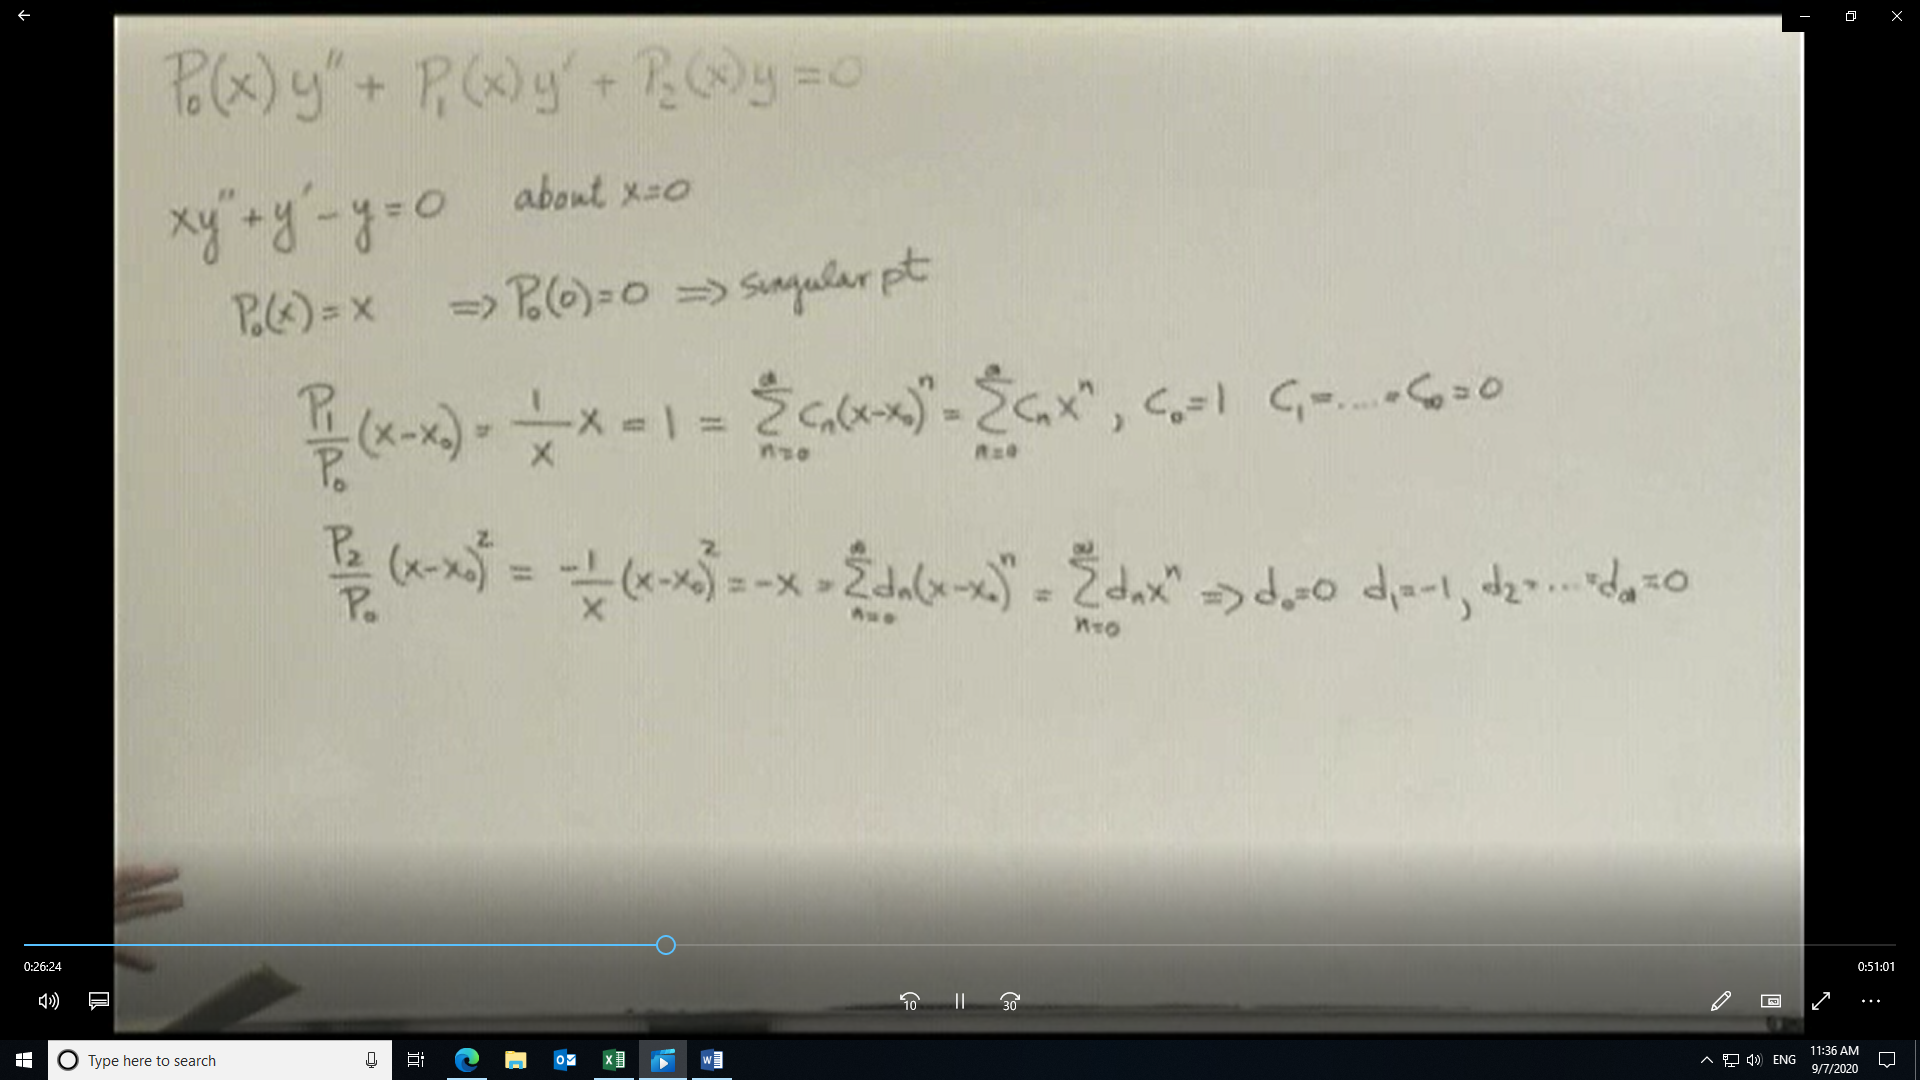 P₀(x) y″ + P₁(x) y′ + P₂(x) y = 0
xy″ + y′ − y = 0 about x=0
P₀(x) = x ⟹ P₀(0) = 0 ⟹ singular pt
P₁/P₀ (x−x₀) = 1/x x = 1 = ∑ₙ₌₀^∞ cₙ(x−x₀)ⁿ = ∑ₙ₌₀^∞ cₙxⁿ , c₀=1 c₁=....=c∞=0
P₂/P₀ (x−x₀)² = −1/x (x−x₀)² = −x = ∑ₙ₌₀^∞ dₙ(x−x₀)ⁿ = ∑ₙ₌₀^∞ dₙxⁿ ⟹ d₀=0 d₁=−1, d₂=...=d∞=0
0:26:24
0:51:01
10
30
Type here to search
ENG
11:36 AM
9/7/2020